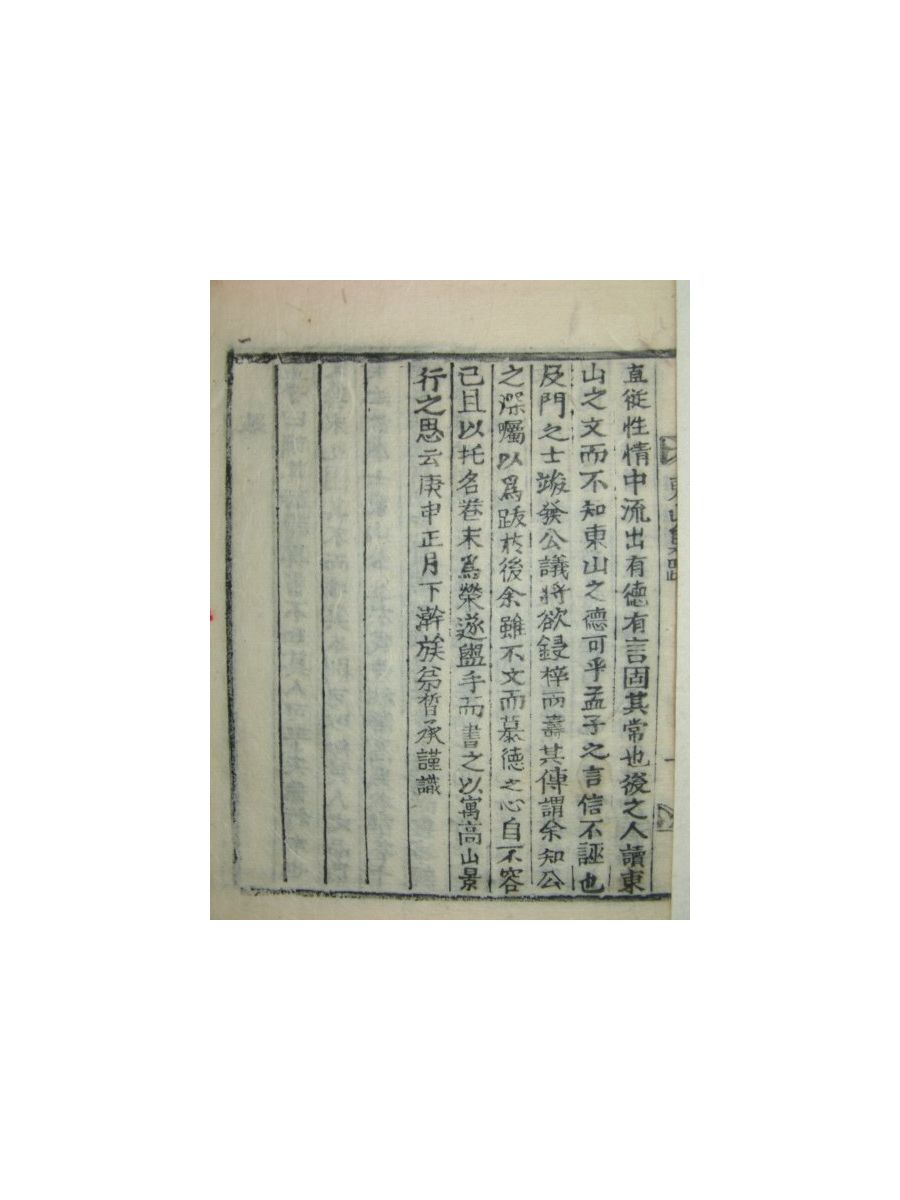 東山集跋
直從性情中流出有德有言固其常也後之人讀東
山之文而不知東山之德可乎孟子之言信不誣也
及門之士踆發公議將欲鋟梓而壽其傳謂余知公
之深囑以爲跋於後余雖不文而慕德之心自不容
已且以托名卷末爲榮遂盥手而書之以寓高山景
行之思云庚申正月下澣族弟晳承謹識